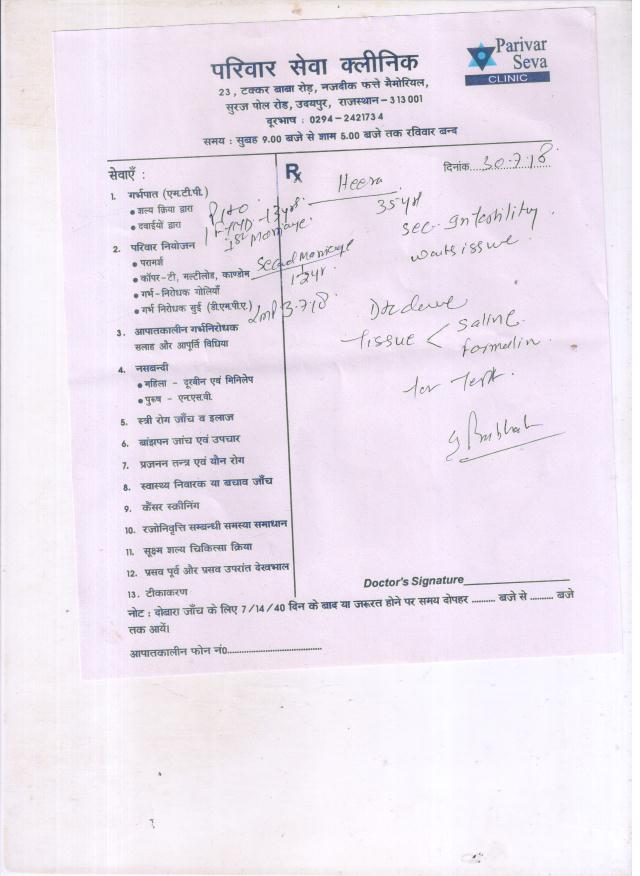 परिवार सेवा क्लीनिक
Parivar
Seva
CLINIC
23, टक्कर बाबा रोड़, नजदीक फत्ते मैमोरियल,
सुरज पोल रोड़, उदयपुर, राजस्थान-313001
दूरभाष : 0294-2421734
समय : सुबह 9.00 बजे से शाम 5.00 बजे तक रविवार बन्द
सेवाएँ :
Rx
दिनांक 30.7.18
Heera
35yr
1. गर्भपात (एम.टी.पी.)
• शल्य क्रिया द्वारा
• दवाईयों द्वारा
1 FTND - 13yr
1st Marriage
Sec. Infertility
wants issue
2. परिवार नियोजन
• परामर्श
• कॉपर-टी, मल्टीलोड, काण्डोम
• गर्भ-निरोधक गोलियाँ
• गर्भ निरोधक सुई (डी.एम.पी.ए.)
Second Marriage
Lmp 3.7.18
3. आपातकालीन गर्भनिरोधक
सलाह और आपूर्ति विधिया
tissue < saline
formalin
for Test.
4. नसबन्दी
• महिला - दूरबीन एवं मिनिलेप
• पुरूष - एन.एस.वी.
5. स्त्री रोग जाँच व इलाज
6. बांझपन जांच एवं उपचार
7. प्रजनन तन्त्र एवं यौन रोग
8. स्वास्थ्य निवारक या बचाव जाँच
9. कैंसर स्क्रीनिंग
10. रजोनिवृत्ति सम्बन्धी समस्या समाधान
11. सूक्ष्म शल्य चिकित्सा क्रिया
12. प्रसव पूर्व और प्रसव उपरांत देखभाल
13. टीकाकरण
Doctor's Signature
नोट : दोबारा जाँच के लिए 7/14/40 दिन के बाद या जरूरत होने पर समय दोपहर .......... बजे से .......... बजे
तक आवें।
आपातकालीन फोन नं0..............................